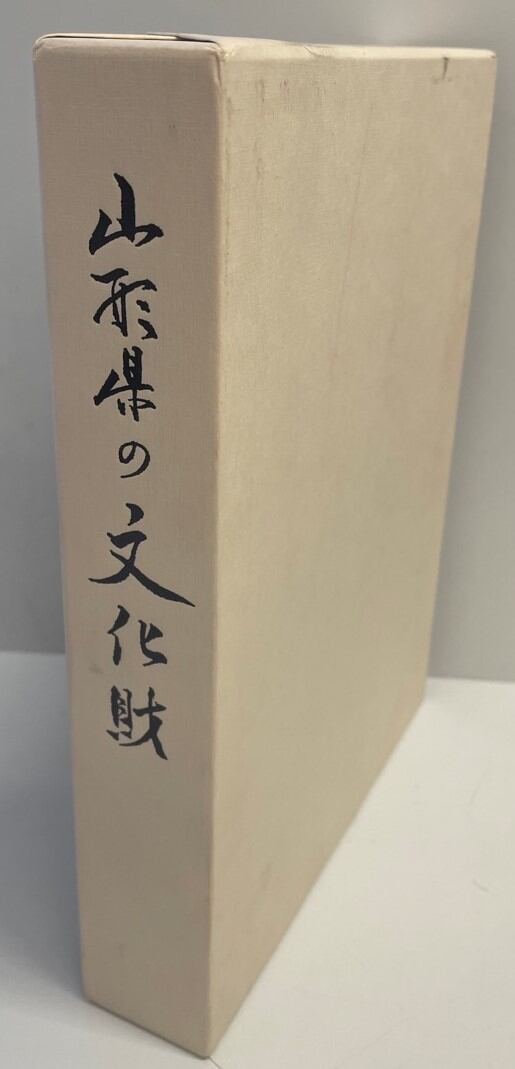 山形県の文化財